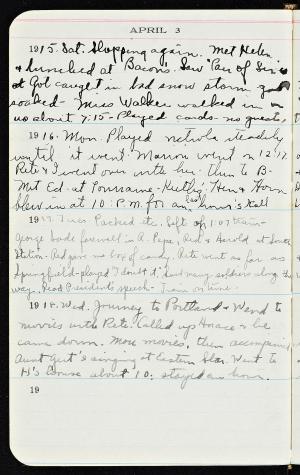 APRIL 3
1915. Sat. Shopping again. Met Helen
& lunched at Bacons. Saw "Pair of Sixes"
at Got caught in bad snow storm
soaked - Miss Walker walked in on
us about 7.15 - Played cards - no guests,
1916. Mon. Played victrola steadily
until it went. Marion went on 12.17.
Pete & I went over with her then to B-
Met Ed- at Touraine- Hen & Horn
blew in at 10 P.M. for an hour's call
1917. Tues. Packed etc. Left on 1:07 train-
George bade farewell in R. Red & Harold at South
Station. Red gave me box of candy. Pete went as far as
Springfield - played "I doubt it". Saw many soldiers along the
way. Read President's speech - Train on time.
1918. Wed. Journey to Portland & Wend to
movies with Pete. Called up Horace & he
came down. More movies, then accompanied
Aunt Gert's singing at Eastern Star. Went to
H's house about 10; stayed an hour.
19